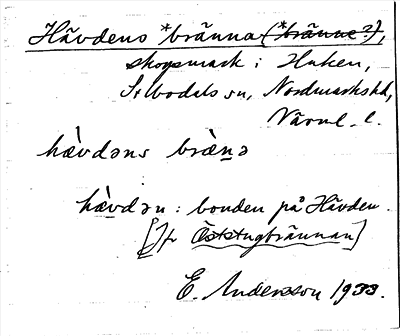 Hävdens *bränna (*bränne?),
skogsmark i Huken,
Silbodals sn, Nordmarkshd,
Värml. l.
hæ̀vdəns bræ̀nə
hæ̀vdən: bonden på Hävden.
[Jfr Öststugbrännan]
E. Andersson 1933.